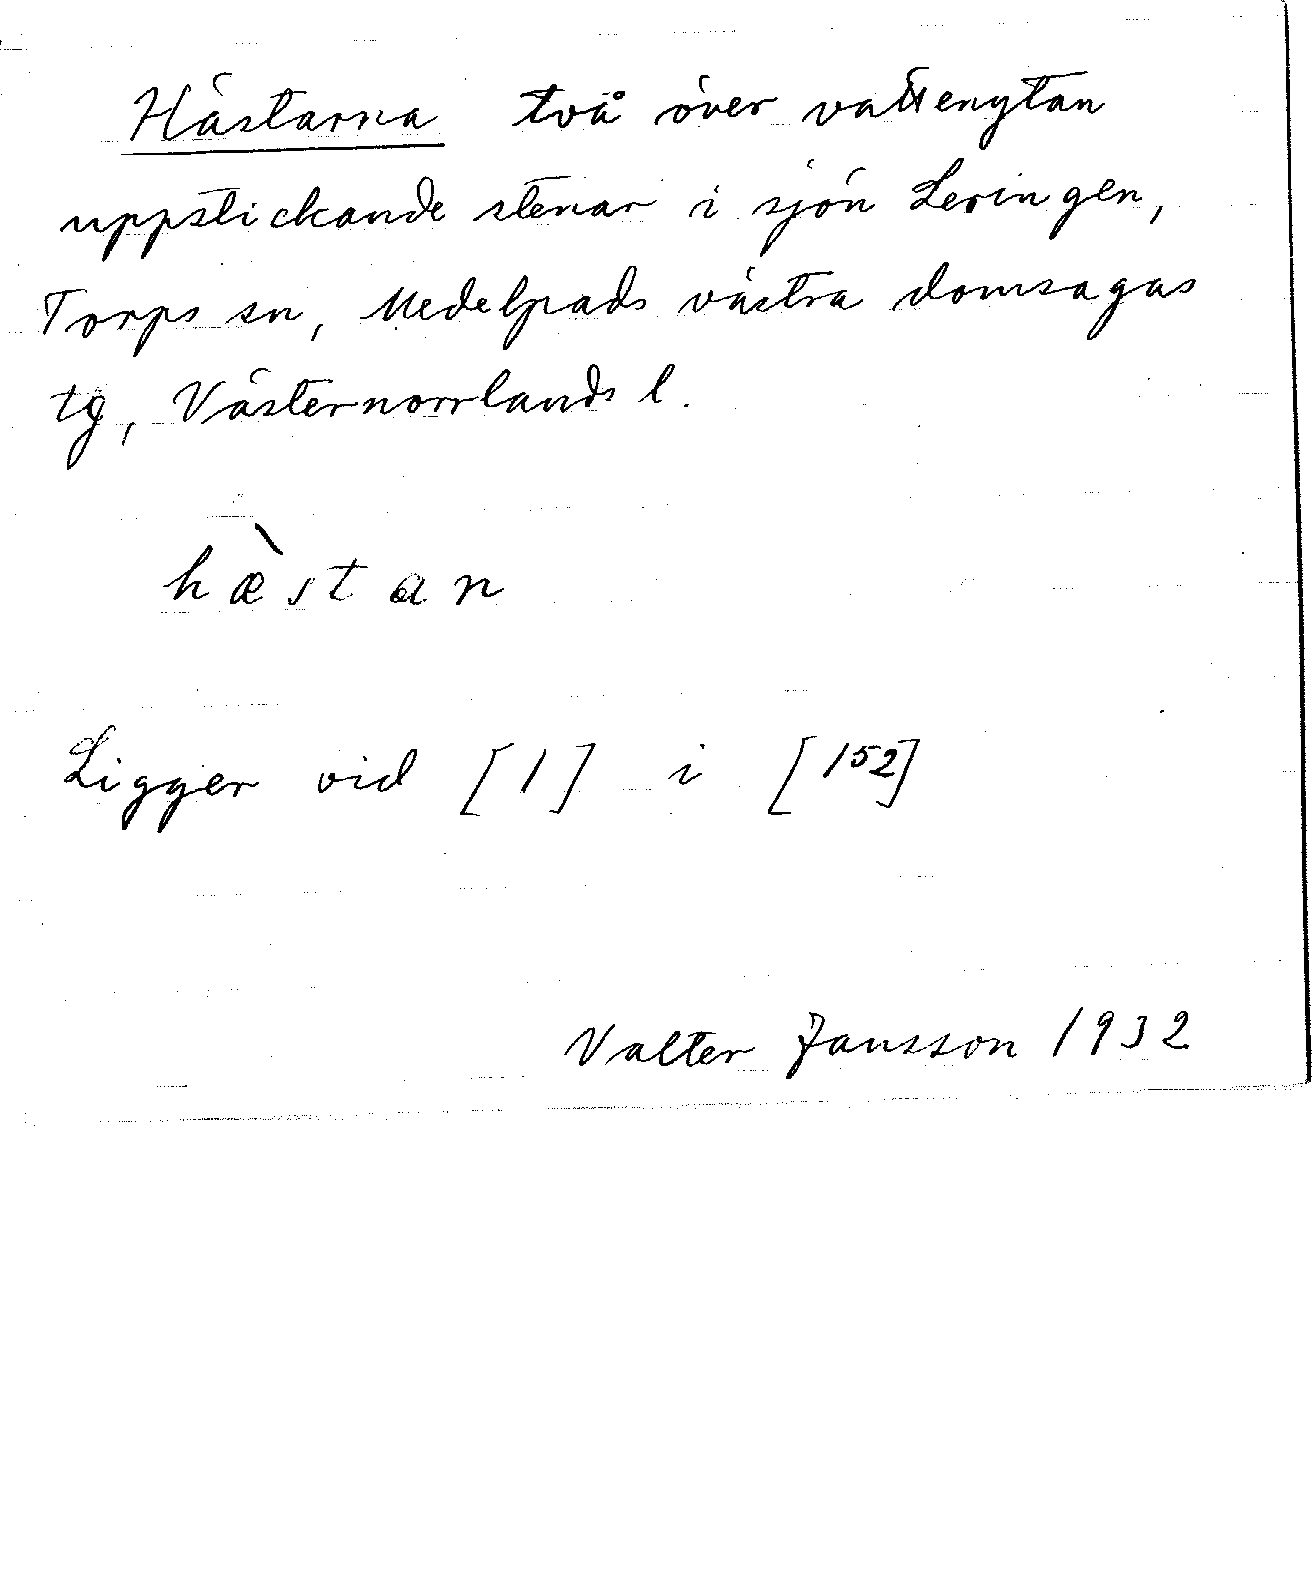 Hästarna två över vattenytan
uppstickande stenar i sjön Leringen,
Torps sn, Medelpads västra domsagas
tg, Västernorrlands l.
hæ̀stan
Ligger vid [1] i [152]
Valter Jansson 1932